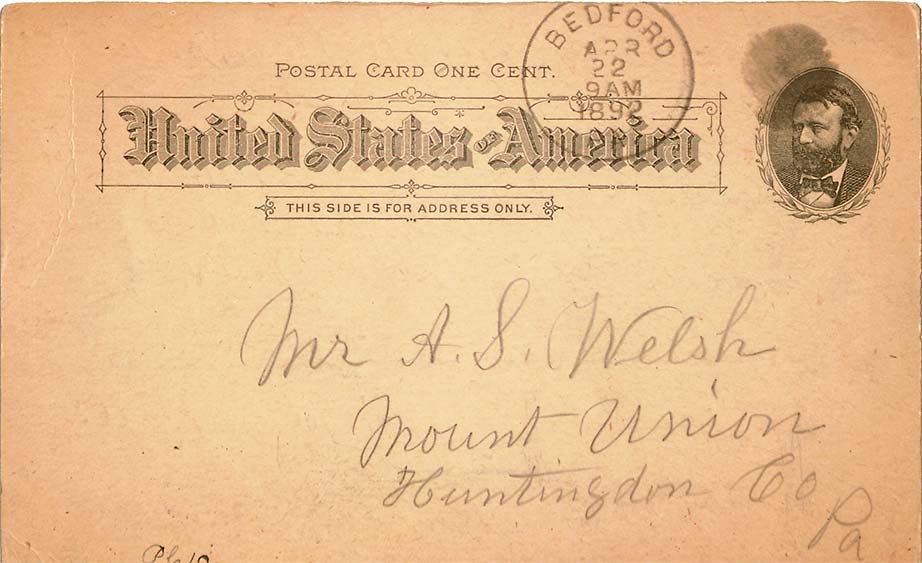 POSTAL CARD ONE CENT.
BEDFORD
APR
22
9AM
1892
United States OF America
THIS SIDE IS FOR ADDRESS ONLY.
Mr A. S. Welsh
Mount Union
Huntingdon Co
Pa